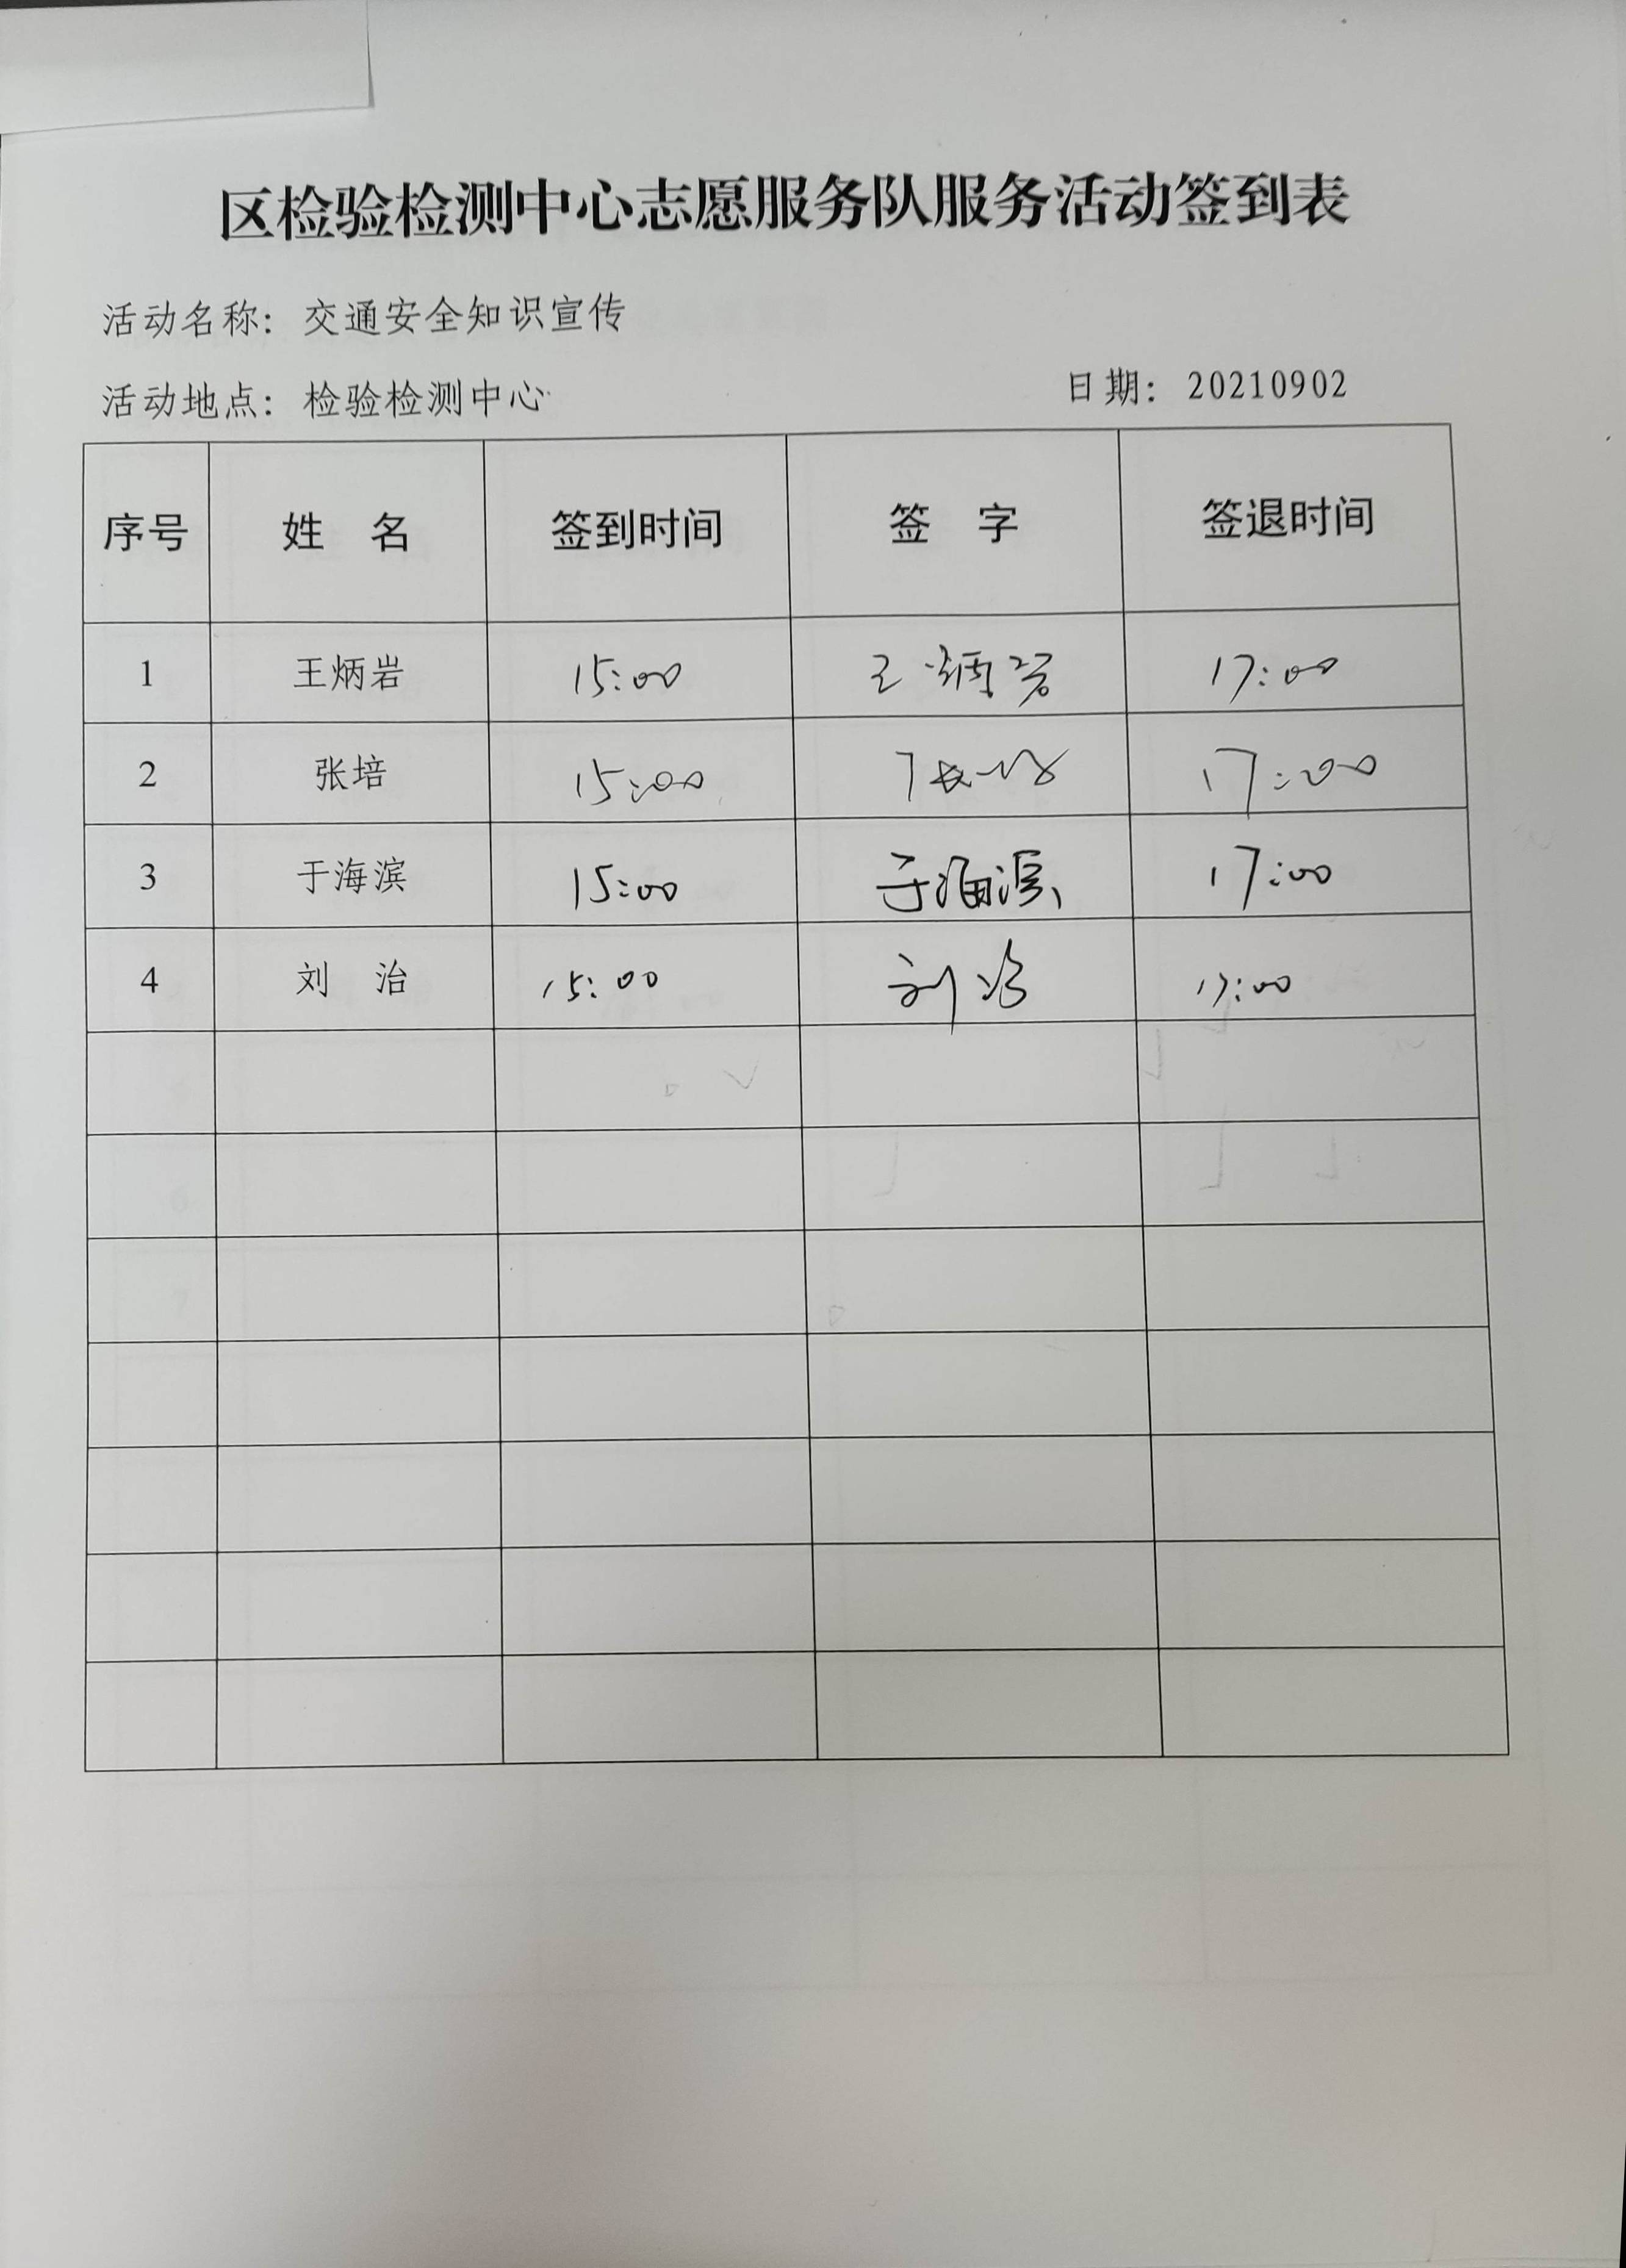 区检验检测中心志愿服务队服务活动签到表
活动名称：交通安全知识宣传
活动地点：检验检测中心 日期：20210902
序号 姓 名 签到时间 签 字 签退时间
1 王炳岩 15:00 王炳岩 17:00
2 张培 15:00 张培 17:00
3 于海滨 15:00 于海滨 17:00
4 刘 治 15:00 刘治 17:00